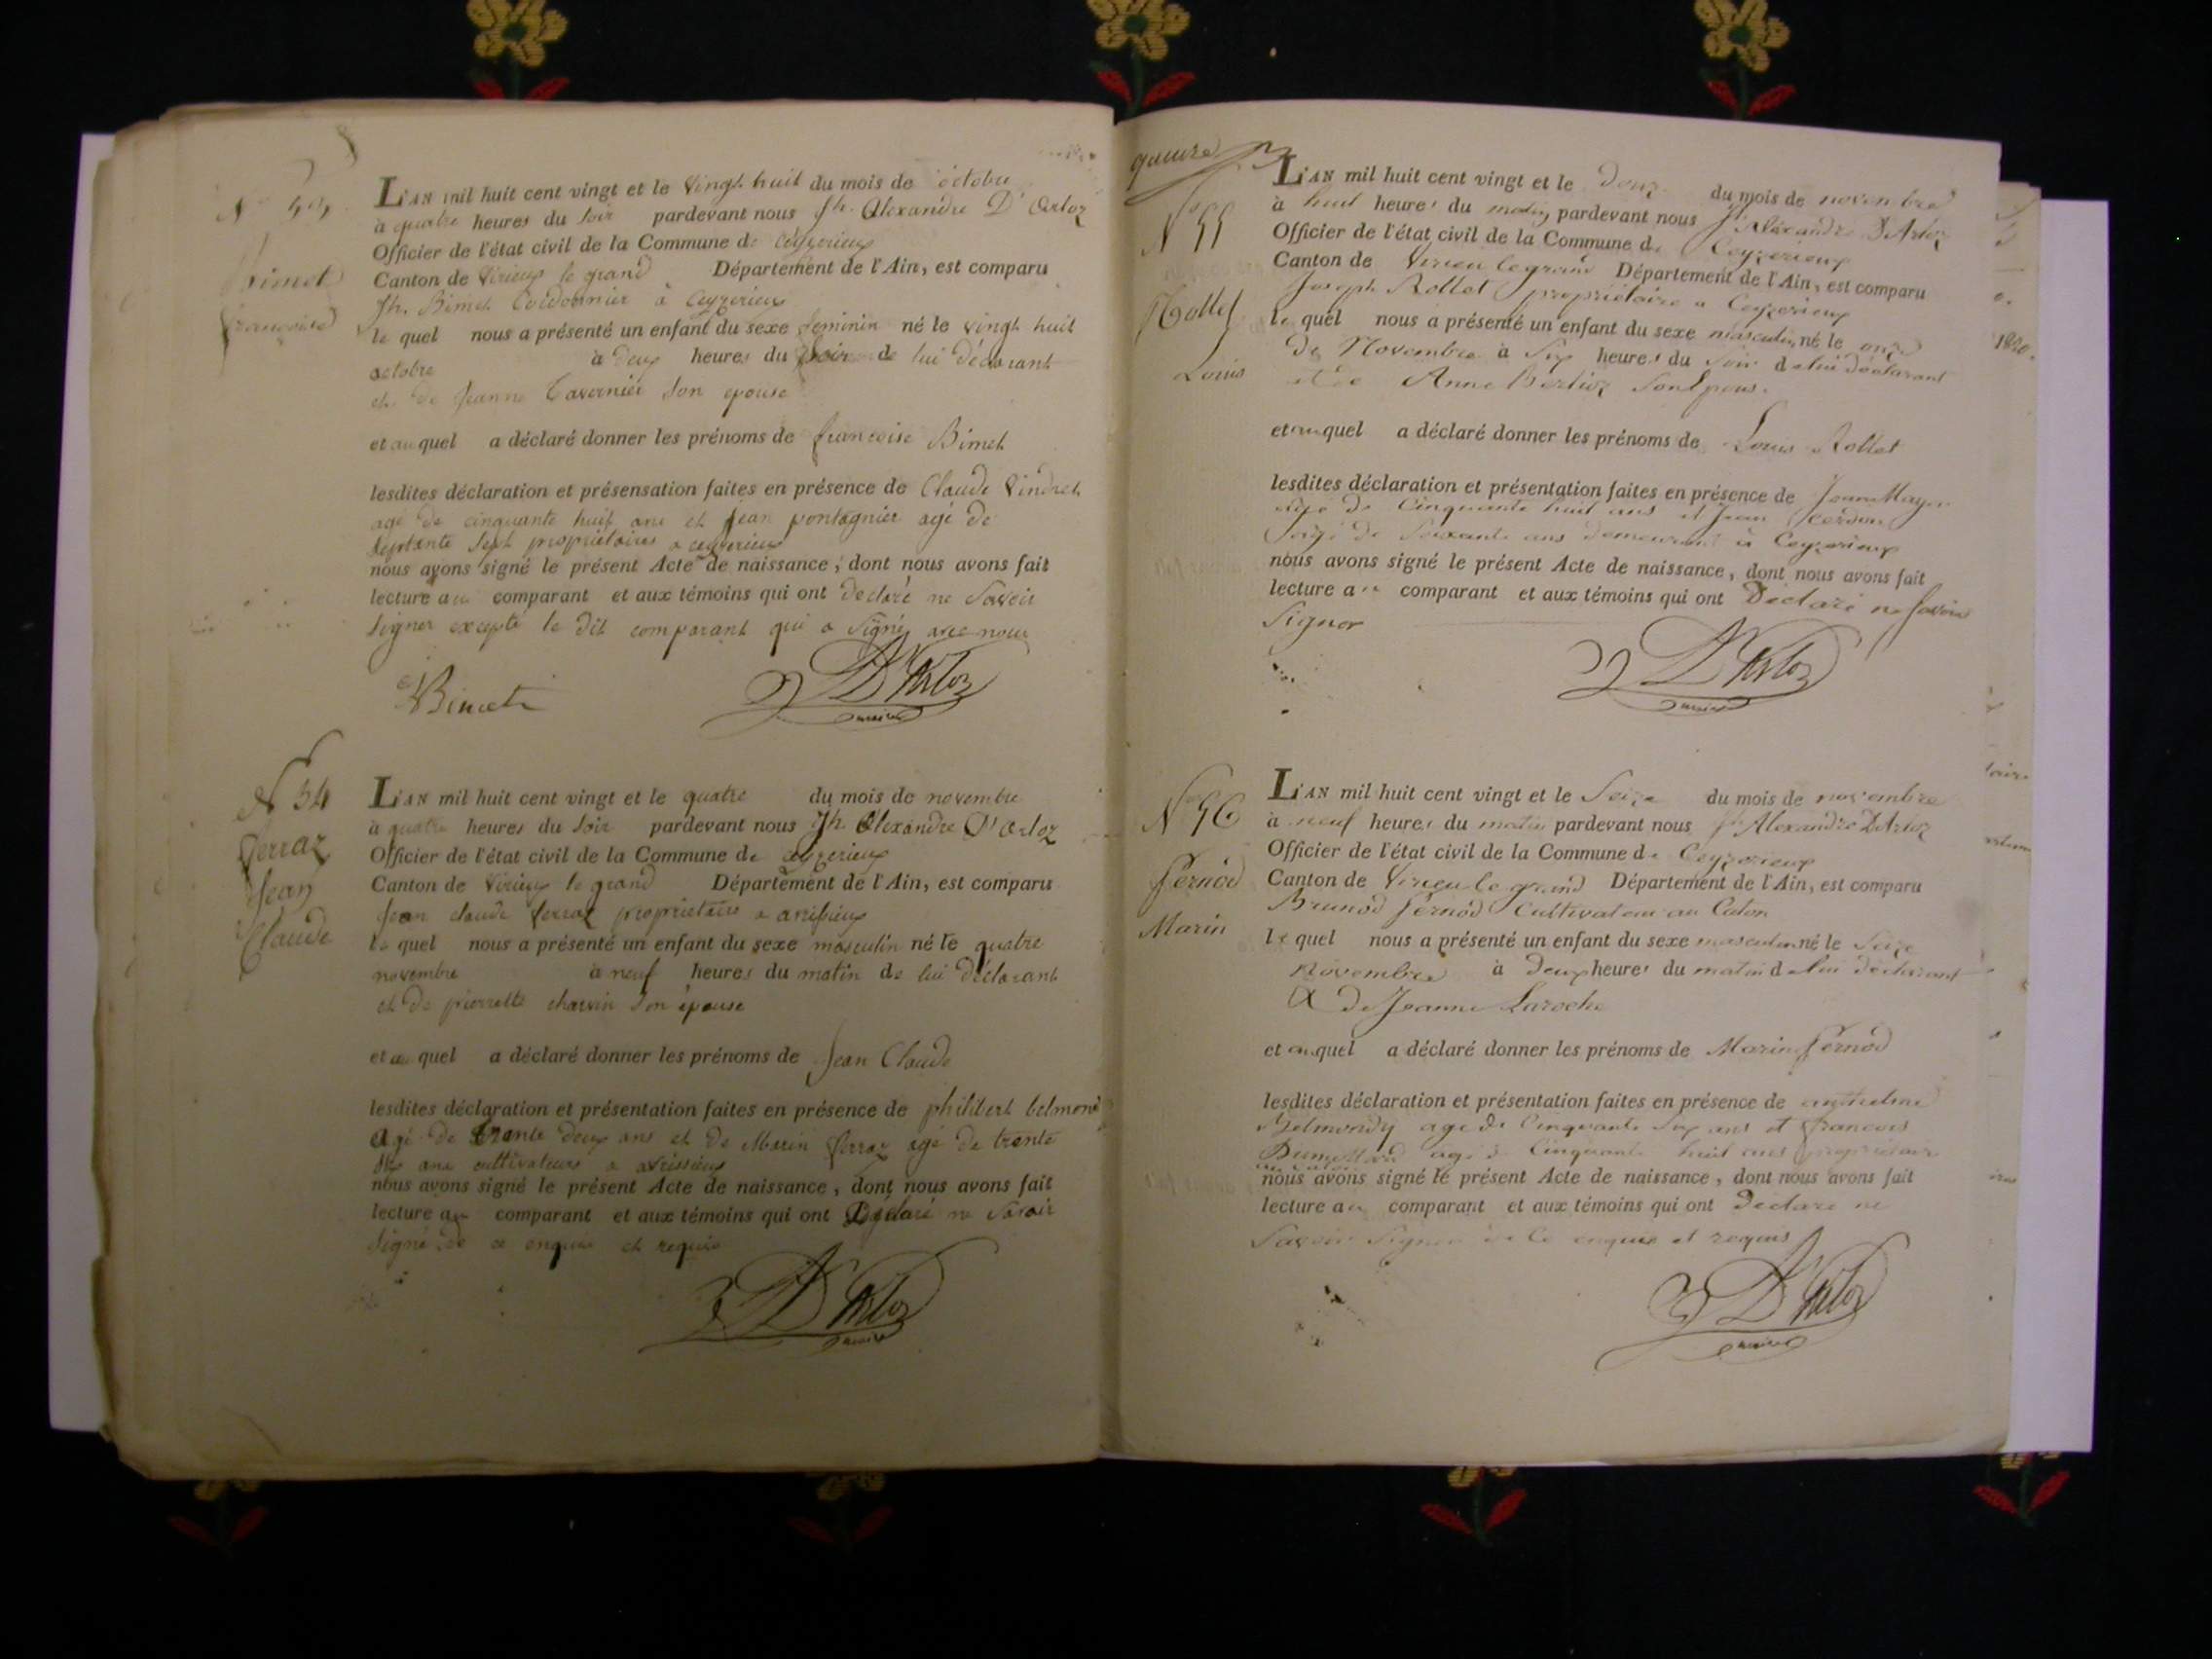 Bimet
françoise
L'AN mil huit cent vingt et le vingt huit du mois de octobre
à quatre heures du soir pardevant nous Jh. Alexandre D'Arloz
Officier de l'état civil de la Commune de ceyzerieux
Canton de Virieux le grand Département de l'Ain, est comparu
Jh. Bimet Cordonnier à Ceyzerieux
le quel nous a présenté un enfant du sexe feminin né le vingt huit
octobre à deux heures du soir de lui déclarant
et de Jeanne Tavernier son epouse
et au quel a déclaré donner les prénoms de françoise Bimet
lesdites déclaration et présensation faites en présence de Claude Vindret
agé de cinquante huit ans et Jean pontagnier agé de
septante sept proprietaires a ceyzerieux
nous avons signé le présent Acte de naissance, dont nous avons fait
lecture au comparant et aux témoins qui ont declaré ne Savoir
signer excepté le dit comparant qui a signé avec nous
Bimet D'Arloz
maire
N 54
ferraz
Jean
Claude
L'AN mil huit cent vingt et le quatre du mois de novembre
à quatre heures du soir pardevant nous Jh. Alexandre D'Arloz
Officier de l'état civil de la Commune de ceyzerieux
Canton de Virieux le grand Département de l'Ain, est comparu
Jean claude ferraz proprietaire a
le quel nous a présenté un enfant du sexe masculin né le quatre
novembre à neuf heures du matin de lui déclarant
et de pierrette charvin son épouse
et au quel a déclaré donner les prénoms de Jean Claude
lesdites déclaration et présentation faites en présence de philibert belmond
Agé de trente deux ans et de Marin ferraz agé de trente
six ans cultivateurs a avrissieux
nous avons signé le présent Acte de naissance, dont nous avons fait
lecture au comparant et aux témoins qui ont Déclaré ne Savoir
signé de ce enquis et requis
D'Arloz
maire
N° 55
Rollet
Louis
L'AN mil huit cent vingt et le douze du mois de novembre
à huit heures du matin pardevant nous Jh Alexandre D'Arloz
Officier de l'état civil de la Commune de Ceyzerieux
Canton de Virieu le grand Département de l'Ain, est comparu
Joseph Rollet propriétaire a Ceyzerieux
le quel nous a présenté un enfant du sexe masculin né le onze
de Novembre à six heures du soir de lui déclarant
et de Anne Berlioz
et au quel a déclaré donner les prénoms de Louis Rollet
lesdites déclaration et présentation faites en présence de
agé de Cinquante huit ans et Jean
agé de Soixante ans demeurant à Ceyzerieux
nous avons signé le présent Acte de naissance, dont nous avons fait
lecture au comparant et aux témoins qui ont Declaré ne Savoir
Signer
D'Arloz
maire
N° 56
Fernod
Marin
L'AN mil huit cent vingt et le Seize du mois de novembre
à neuf heures du matin pardevant nous Jh Alexandre D'Arloz
Officier de l'état civil de la Commune de Ceyzerieux
Canton de Virieu le grand Département de l'Ain, est comparu
Brunod Fernod Cultivateur au Caton
le quel nous a présenté un enfant du sexe masculin né le Seize
Novembre à deux heures du matin de lui déclarant
& de Jeanne Laroche
et au quel a déclaré donner les prénoms de Marin Fernod
lesdites déclaration et présentation faites en présence de anthelme
Belmondy agé de Cinquante six ans et francois
agé de Cinquante huit ans propriétaires
nous avons signé le présent Acte de naissance, dont nous avons fait
lecture au comparant et aux témoins qui ont Declaré ne
Savoir Signer de Ce enquis et requis
D'Arloz
maire